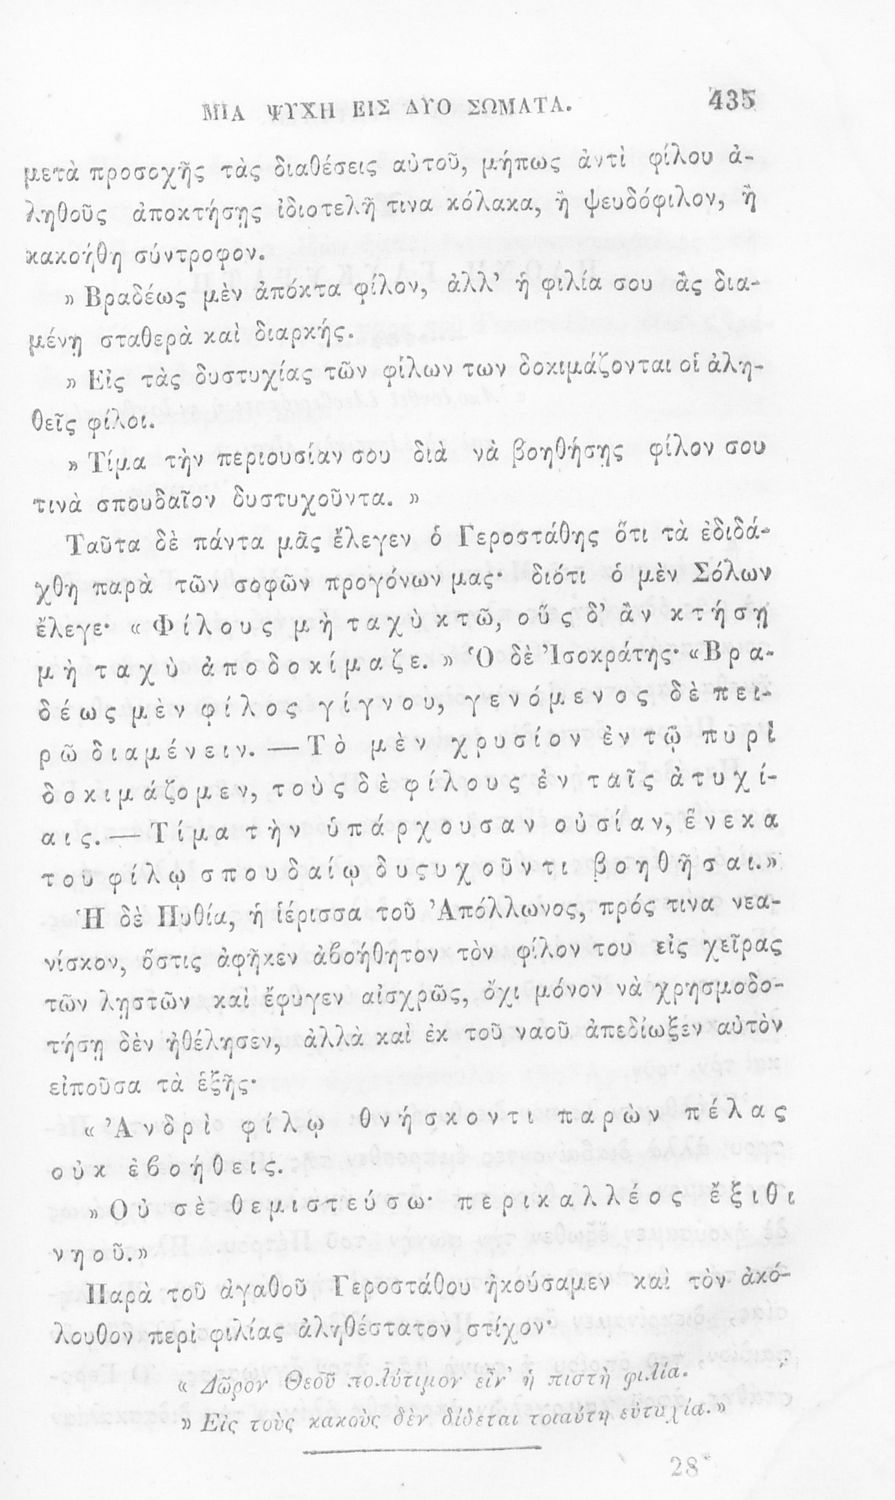 ΜΙΑ ΨΥΧΗ ΕΙΣ ΔΥΟ ΣΩΜΑΤΑ. 435
μετὰ προσοχῆς τὰς διαθέσεις αὐτοῦ, μήπως ἀντὶ φίλου ἀ-
ληθοῦς ἀποκτήσῃς ἰδιοτελῆ τινα κόλακα, ἢ ψευδόφιλον, ἢ
κακοήθη σύντροφον.
» Βραδέως μὲν ἀπόκτα φίλον, ἀλλ' ἡ φιλία σου ἂς δια-
μένῃ σταθερὰ καὶ διαρκής.
» Εἰς τὰς δυστυχίας τῶν φίλων των δοκιμάζονται οἱ ἀλη-
θεῖς φίλοι.
» Τίμα τὴν περιουσίαν σου διὰ νὰ βοηθήσῃς φίλον σου
τινὰ σπουδαῖον δυστυχοῦντα. »
Ταῦτα δὲ πάντα μᾶς ἔλεγεν ὁ Γεροστάθης ὅτι τὰ ἐδιδά-
χθη παρὰ τῶν σοφῶν προγόνων μας· διότι ὁ μὲν Σόλων
ἔλεγε· « Φίλους μὴ ταχὺ κτῶ, οὓς δ' ἂν κτήσῃ
μὴ ταχὺ ἀποδοκίμαζε. » Ὁ δὲ Ἰσοκράτης· «Βρα-
δέως μὲν φίλος γίγνου, γενόμενος δὲ πει-
ρῶ διαμένειν. — Τὸ μὲν χρυσίον ἐν τῷ πυρὶ
δοκιμάζομεν, τοὺς δὲ φίλους ἐν ταῖς ἀτυχί-
αις. — Τίμα τὴν ὑπάρχουσαν οὐσίαν, ἕνεκα
τοῦ φίλῳ σπουδαίῳ δυςυχοῦντι βοηθῆσαι.»
Ἡ δὲ Πυθία, ἡ ἱέρισσα τοῦ Ἀπόλλωνος, πρός τινα νεα-
νίσκον, ὅστις ἀφῆκεν ἀβοήθητον τὸν φίλον του εἰς χεῖρας
τῶν λῃστῶν καὶ ἔφυγεν αἰσχρῶς, ὄχι μόνον νὰ χρησμοδο-
τήσῃ δὲν ἠθέλησεν, ἀλλὰ καὶ ἐκ τοῦ ναοῦ ἀπεδίωξεν αὐτὸν
εἰποῦσα τὰ ἑξῆς·
« Ἀνδρὶ φίλῳ θνήσκοντι παρὼν πέλας
οὐκ ἐβοήθεις.
» Οὐ σὲ θεμιστεύσω· περικαλλέος ἔξιθι
νηοῦ.»
Παρὰ τοῦ ἀγαθοῦ Γεροστάθου ἠκούσαμεν καὶ τὸν ἀκό-
λουθον περὶ φιλίας ἀληθέστατον στίχον·
« Δῶρον Θεοῦ πολύτιμον εἶν' ἡ πιστὴ φιλία.
» Εἰς τοὺς κακοὺς δὲν δίδεται τοιαύτη εὐτυχία.»
28*